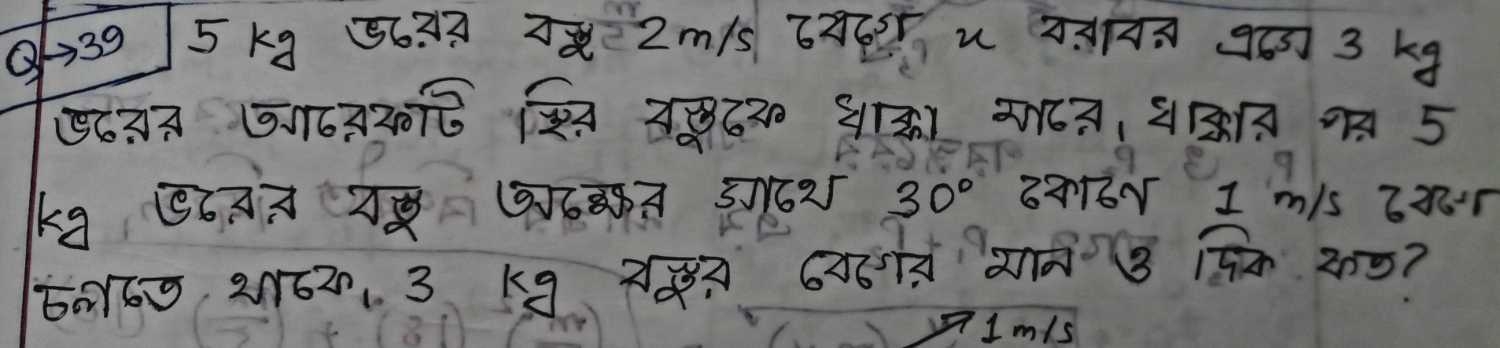 Q→39 5 kg ভরের বস্তু 2 m/s বেগে x বরাবর এসে 3 kg
ভরের আরেকটি স্থির বস্তুকে ধাক্কা মারে, ধাক্কার পর 5
kg ভরের বস্তু অক্ষের সাথে 30° কোণে 1 m/s বেগে
চলতে থাকে, 3 kg বস্তুর বেগের মান ও দিক কত?
1 m/s